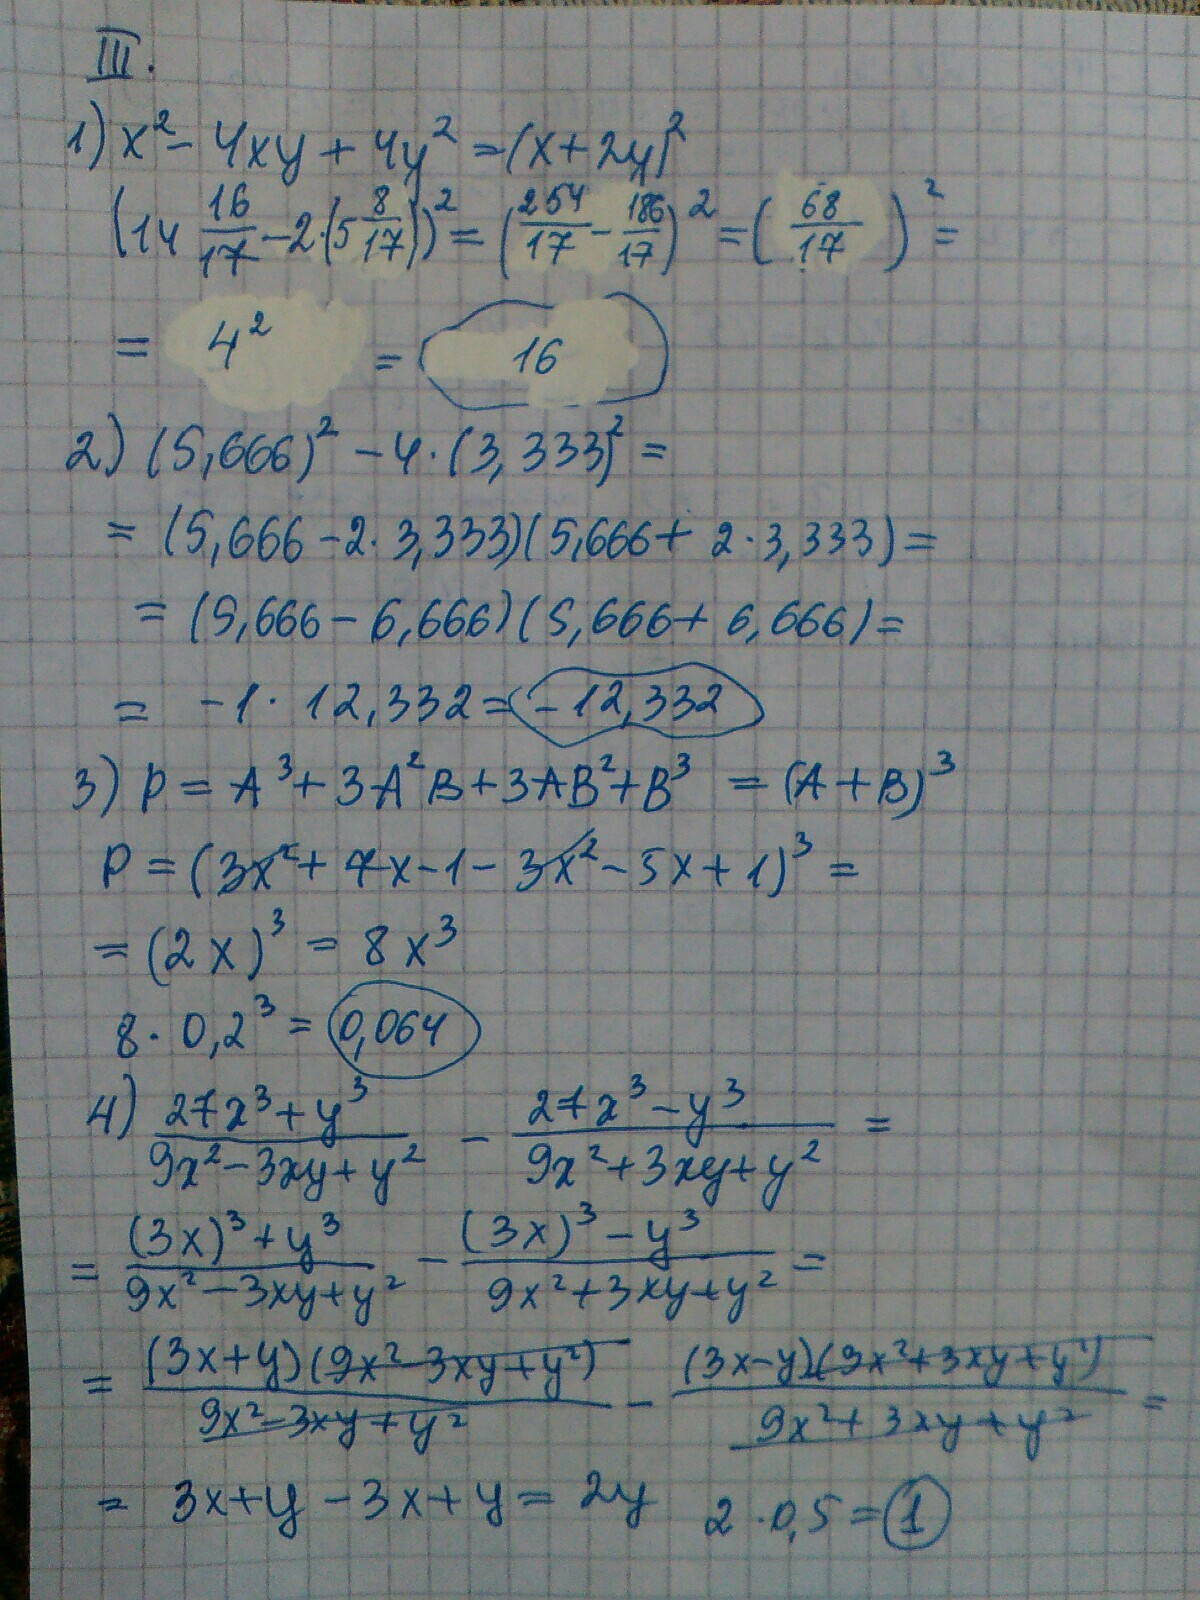 III.
1) x² - 4xy + 4y² = (x + 2y)²
(14 16/17 - 2·(5 8/17))² = (254/17 - 186/17)² = (68/17)² =
= 4² = 16
2) (5,666)² - 4·(3,333)² =
= (5,666 - 2·3,333)(5,666 + 2·3,333) =
= (5,666 - 6,666)(5,666 + 6,666) =
= -1·12,332 = -12,332
3) P = A³ + 3A²B + 3AB² + B³ = (A + B)³
P = (3x² + 7x - 1 - 3x² - 5x + 1)³ =
= (2x)³ = 8x³
8·0,2³ = 0,064
4) (27x³ + y³)/(9x² - 3xy + y²) - (27x³ - y³)/(9x² + 3xy + y²) =
= ((3x)³ + y³)/(9x² - 3xy + y²) - ((3x)³ - y³)/(9x² + 3xy + y²) =
= (3x + y)(9x² - 3xy + y²)/(9x² - 3xy + y²) - (3x - y)(9x² + 3xy + y²)/(9x² + 3xy + y²) =
= 3x + y - 3x + y = 2y 2·0,5 = 1